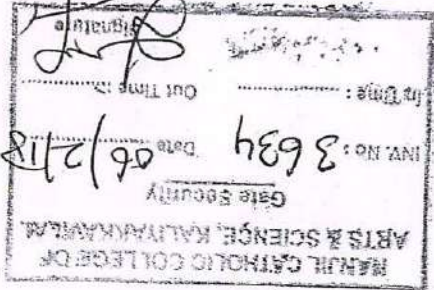 NANJIL CATHOLIC COLLEGE OF
ARTS & SCIENCE, KALIYAKKAVILAI.
Gate Security
INV. No : 3634 Date 06/2/18
In Time : .................. Out Time :> ..................
Signature